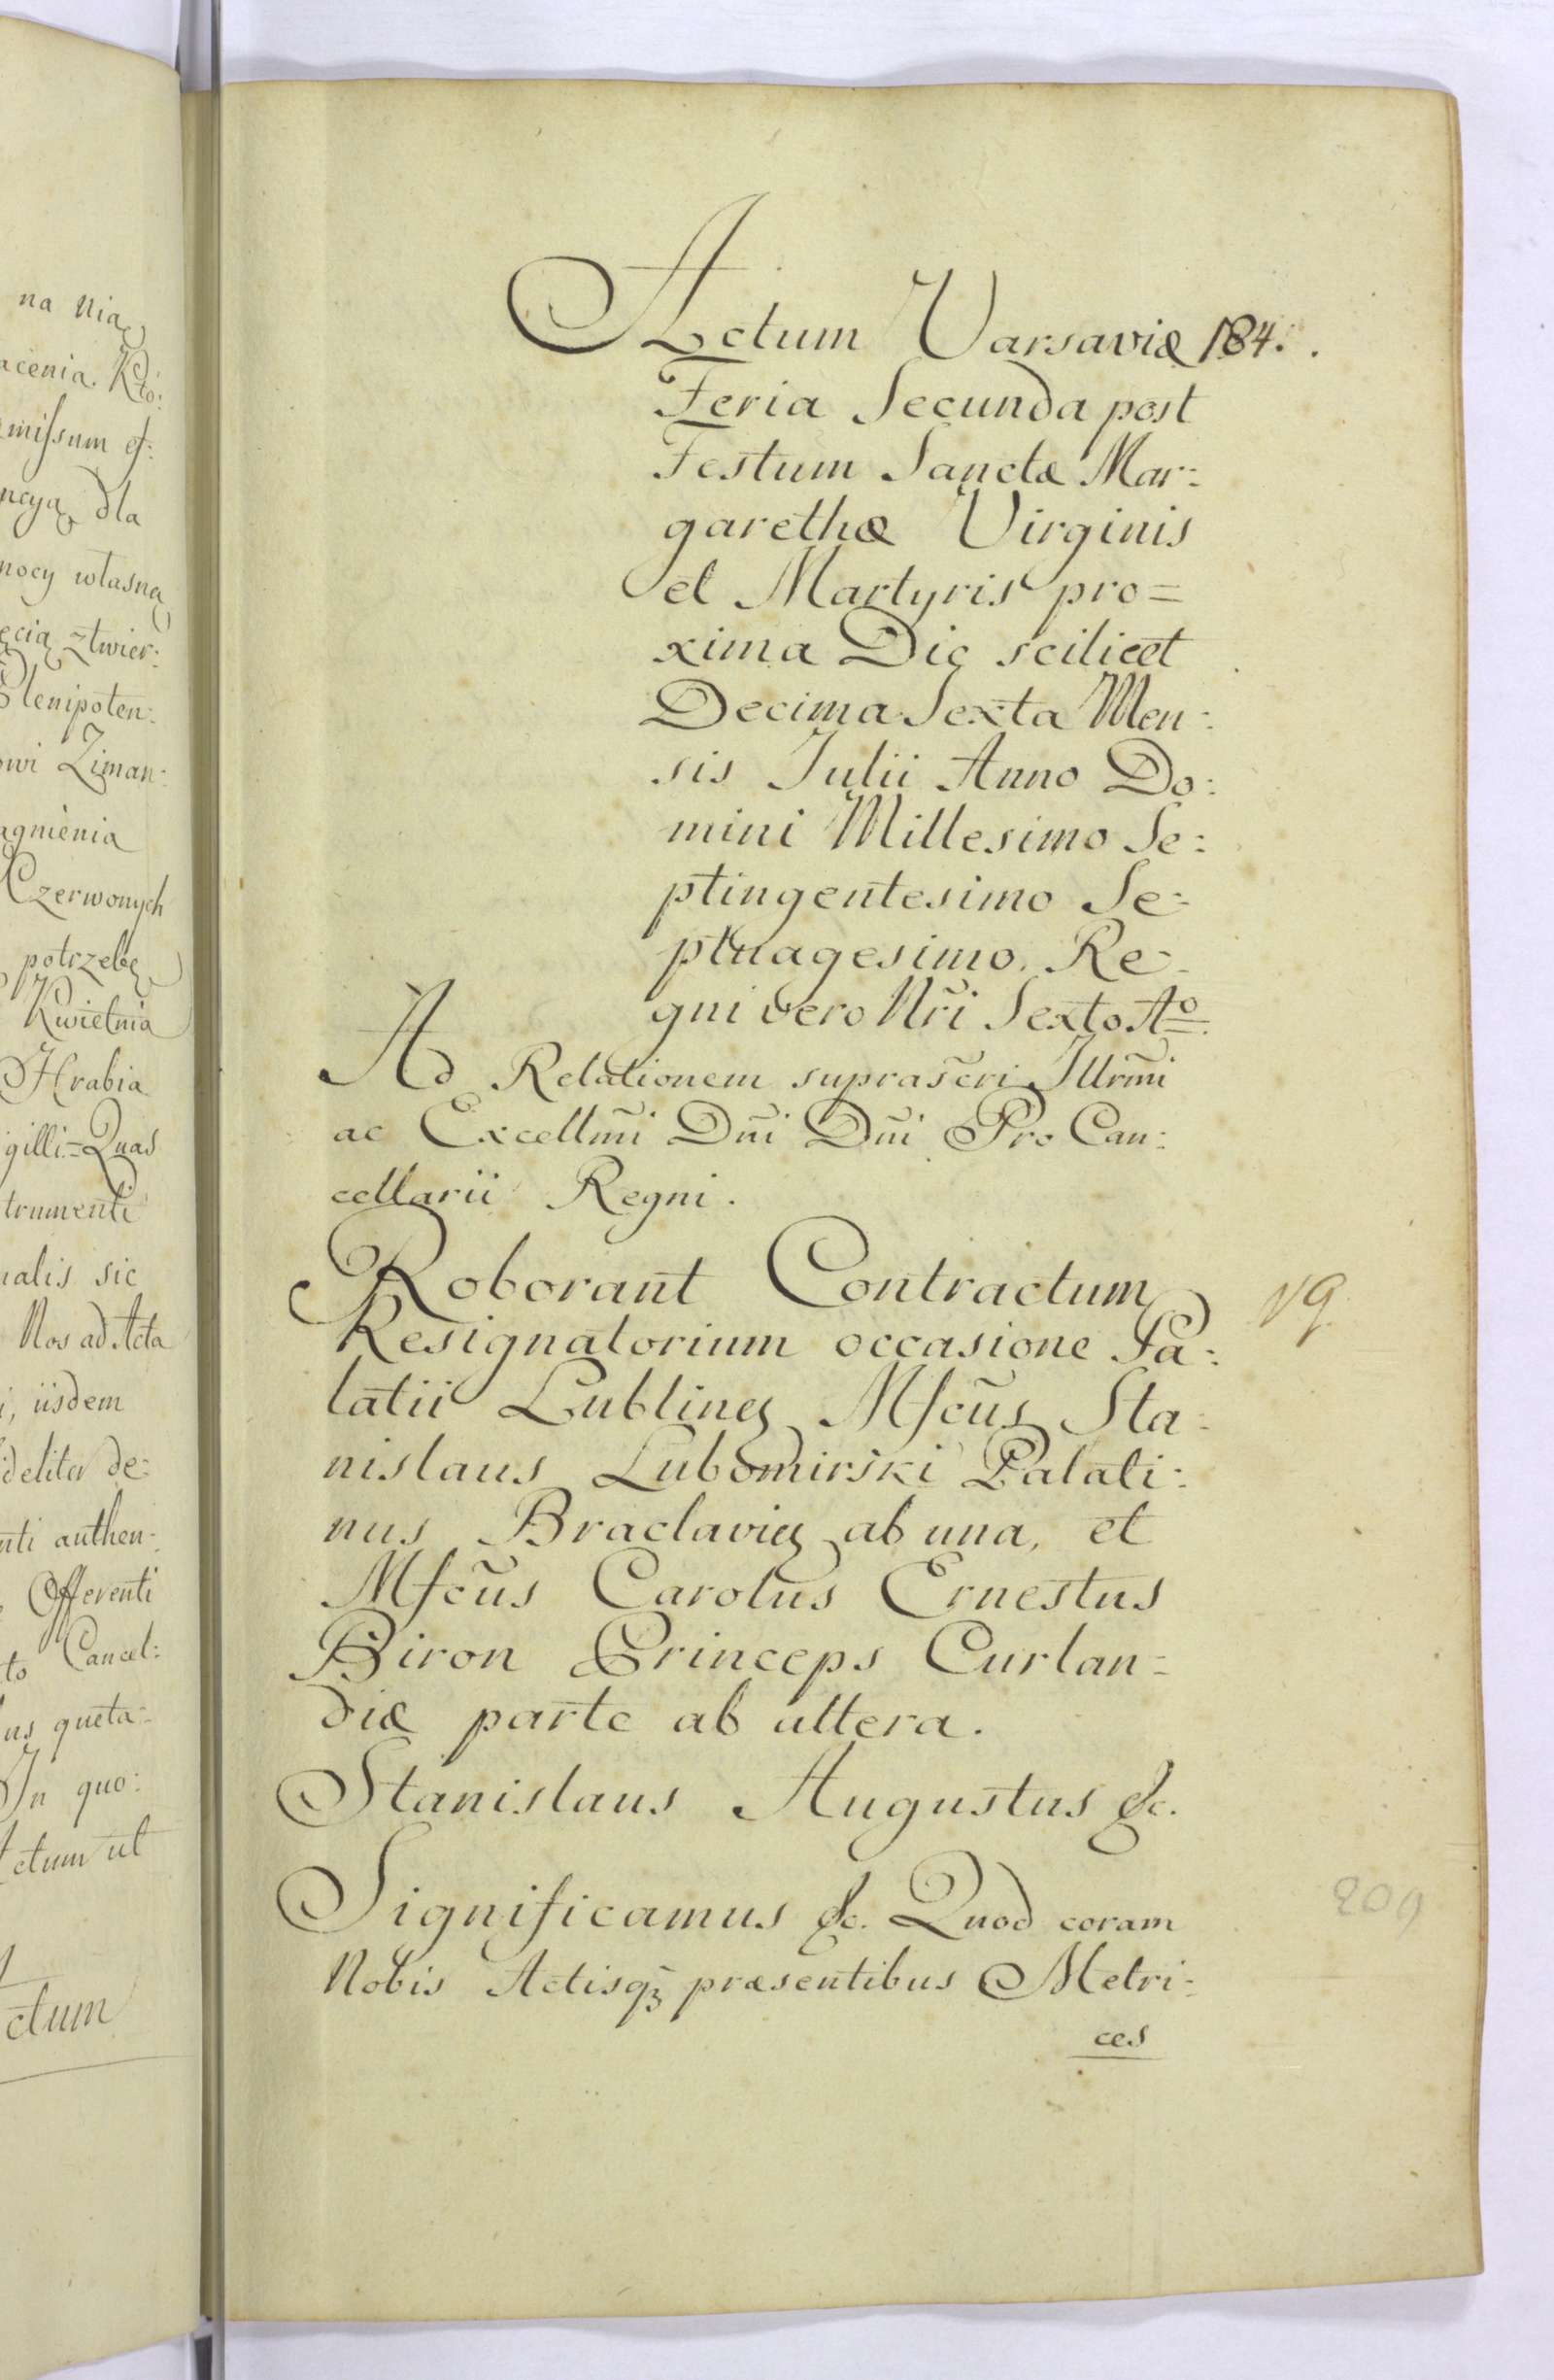 na nią
acenia. Któ:
missum est:
ncyą dla
mocy własną
ęcią ztwier:
Plenipoten:
owi Ziman:
agnienia
Czerwonych
potrzebę
Kwietnia
Hrabia
igilli=Quas
trumenti
nalis sic
Nos ad Acta
i, iisdem
ideliter de:
nti authen-
Offerenti
to Cancel:
us queta-
In quo:
Actum ut
ctum
Actum Varsaviæ 184.
Feria Secunda post
Festum Sanctæ Mar:
garethæ Virginis
et Martyris pro=
xima Die scilicet
Decima Sexta Men:
sis Julii Anno Do:
mini Millesimo Se:
ptingentesimo Se:
ptuagesimo. Re-
gni vero Nri Sexto Aº.
Ad Relationem suprascri Illrmi
ac Excellmi Dni Dni Pro Can:
cellarii Regni.
Roborant Contractum
Resignatorium occasione Pa:
latii Lublinen Mfcus Sta:
nislaus Lubomirski Palati:
nus Braclavien ab una, et
Mfcus Carolus Ernestus
Biron Princeps Curlan=
diæ parte ab altera.
19
Stanislaus Augustus &c.
Significamus &c. Quod coram
Nobis Actisq3 præsentibus Metri:
ces
209